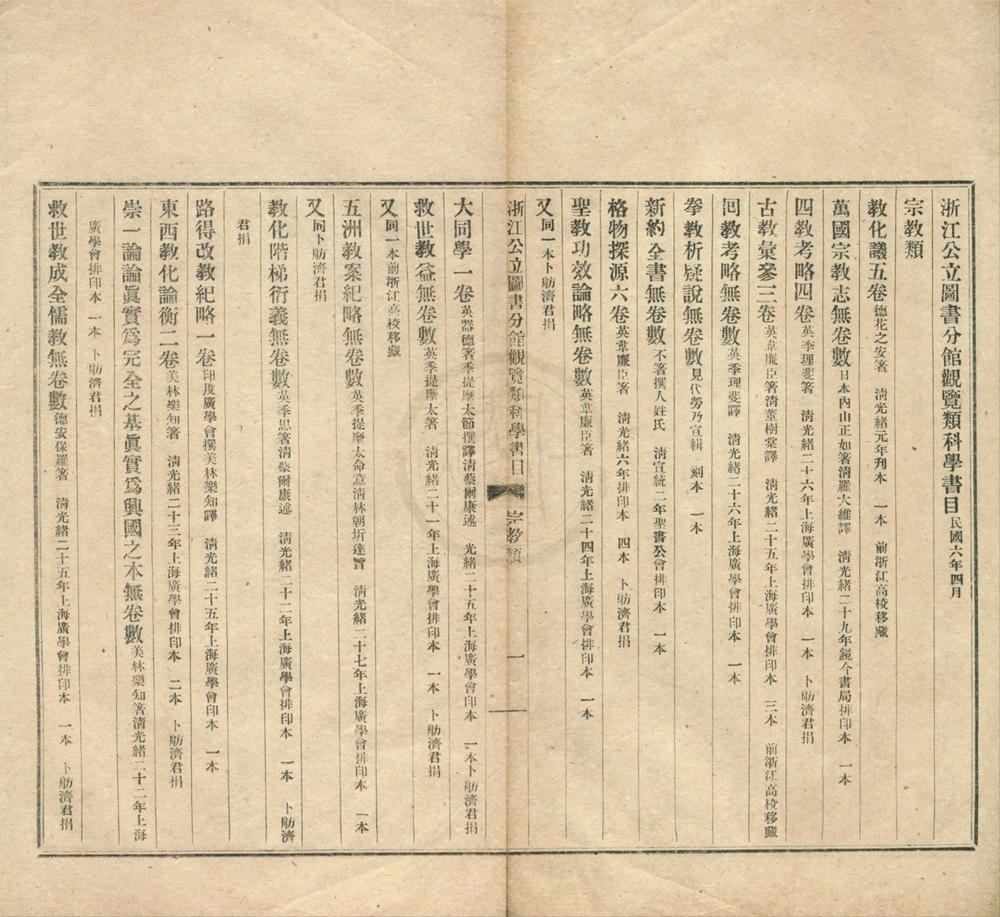 浙江公立圖書分館觀覽類科學書目民國六年四月
宗教類
教化議五卷德花之安著 淸光緒元年刋本 一本 前浙江高校移藏
萬國宗教志無卷數日本內山正如著淸羅大維譯 淸光緒二十九年鏡今書局排印本 一本
四教考略四卷英季理斐著 淸光緒二十六年上海廣學會排印本 一本 卜舫濟君捐
古教彙參三卷英韋廉臣著淸董樹棠譯 淸光緒二十五年上海廣學會排印本 三本 前浙江高校移藏
囘教考略無卷數英季理斐譯 淸光緒二十六年上海廣學會排印本 一本
拳教析疑說無卷數見代勞乃宣輯 刻本 一本
新約全書無卷數不著撰人姓氏 淸宣統二年聖書公會排印本 一本
格物探源六卷英韋廉臣著 淸光緒六年排印本 四本 卜舫濟君捐
聖教功效論略無卷數英韋廉臣著 淸光緒二十四年上海廣學會排印本 一本
又同一本卜舫濟君捐
浙江公立圖書分館觀覽類科學書目 宗教類 一
大同學一卷英器德著季提摩太節撰譯淸蔡爾康述 光緒二十五年上海廣學會印本 一本卜舫濟君捐
救世教益無卷數英季提摩太著 淸光緒二十一年上海廣學會排印本 一本 卜舫濟君捐
又同一本前浙江高校移藏
五洲教案紀略無卷數英季提摩太命意淸林朝圻達旨 淸光緒二十七年上海廣學會排印本 一本
又同卜舫濟君捐
教化階梯衍義無卷數英季思著淸蔡爾康述 淸光緒二十二年上海廣學會排印本 一本 卜舫濟
君捐
路得改教紀略一卷印度廣學會撰美林樂知譯 淸光緒二十五年上海廣學會印本 一本
東西教化論衡二卷美林樂知著 淸光緒二十三年上海廣學會排印本 二本 卜舫濟君捐
崇一論論眞實爲完全之基眞實爲興國之本無卷數美林樂知著淸光緒二十二年上海
廣學會排印本 一本 卜舫濟君捐
救世教成全儒教無卷數德安保羅著 淸光緒二十五年上海廣學會排印本 一本 卜舫濟君捐